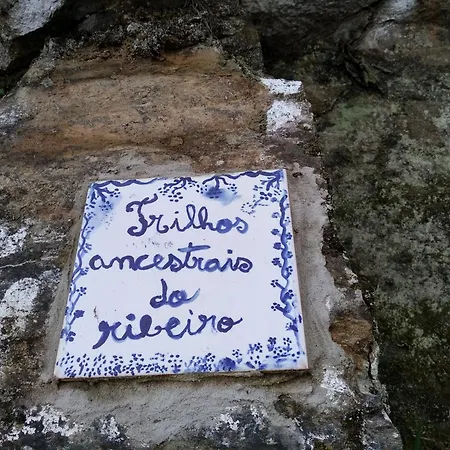 Trilhos
ancestrais
do
ribeiro